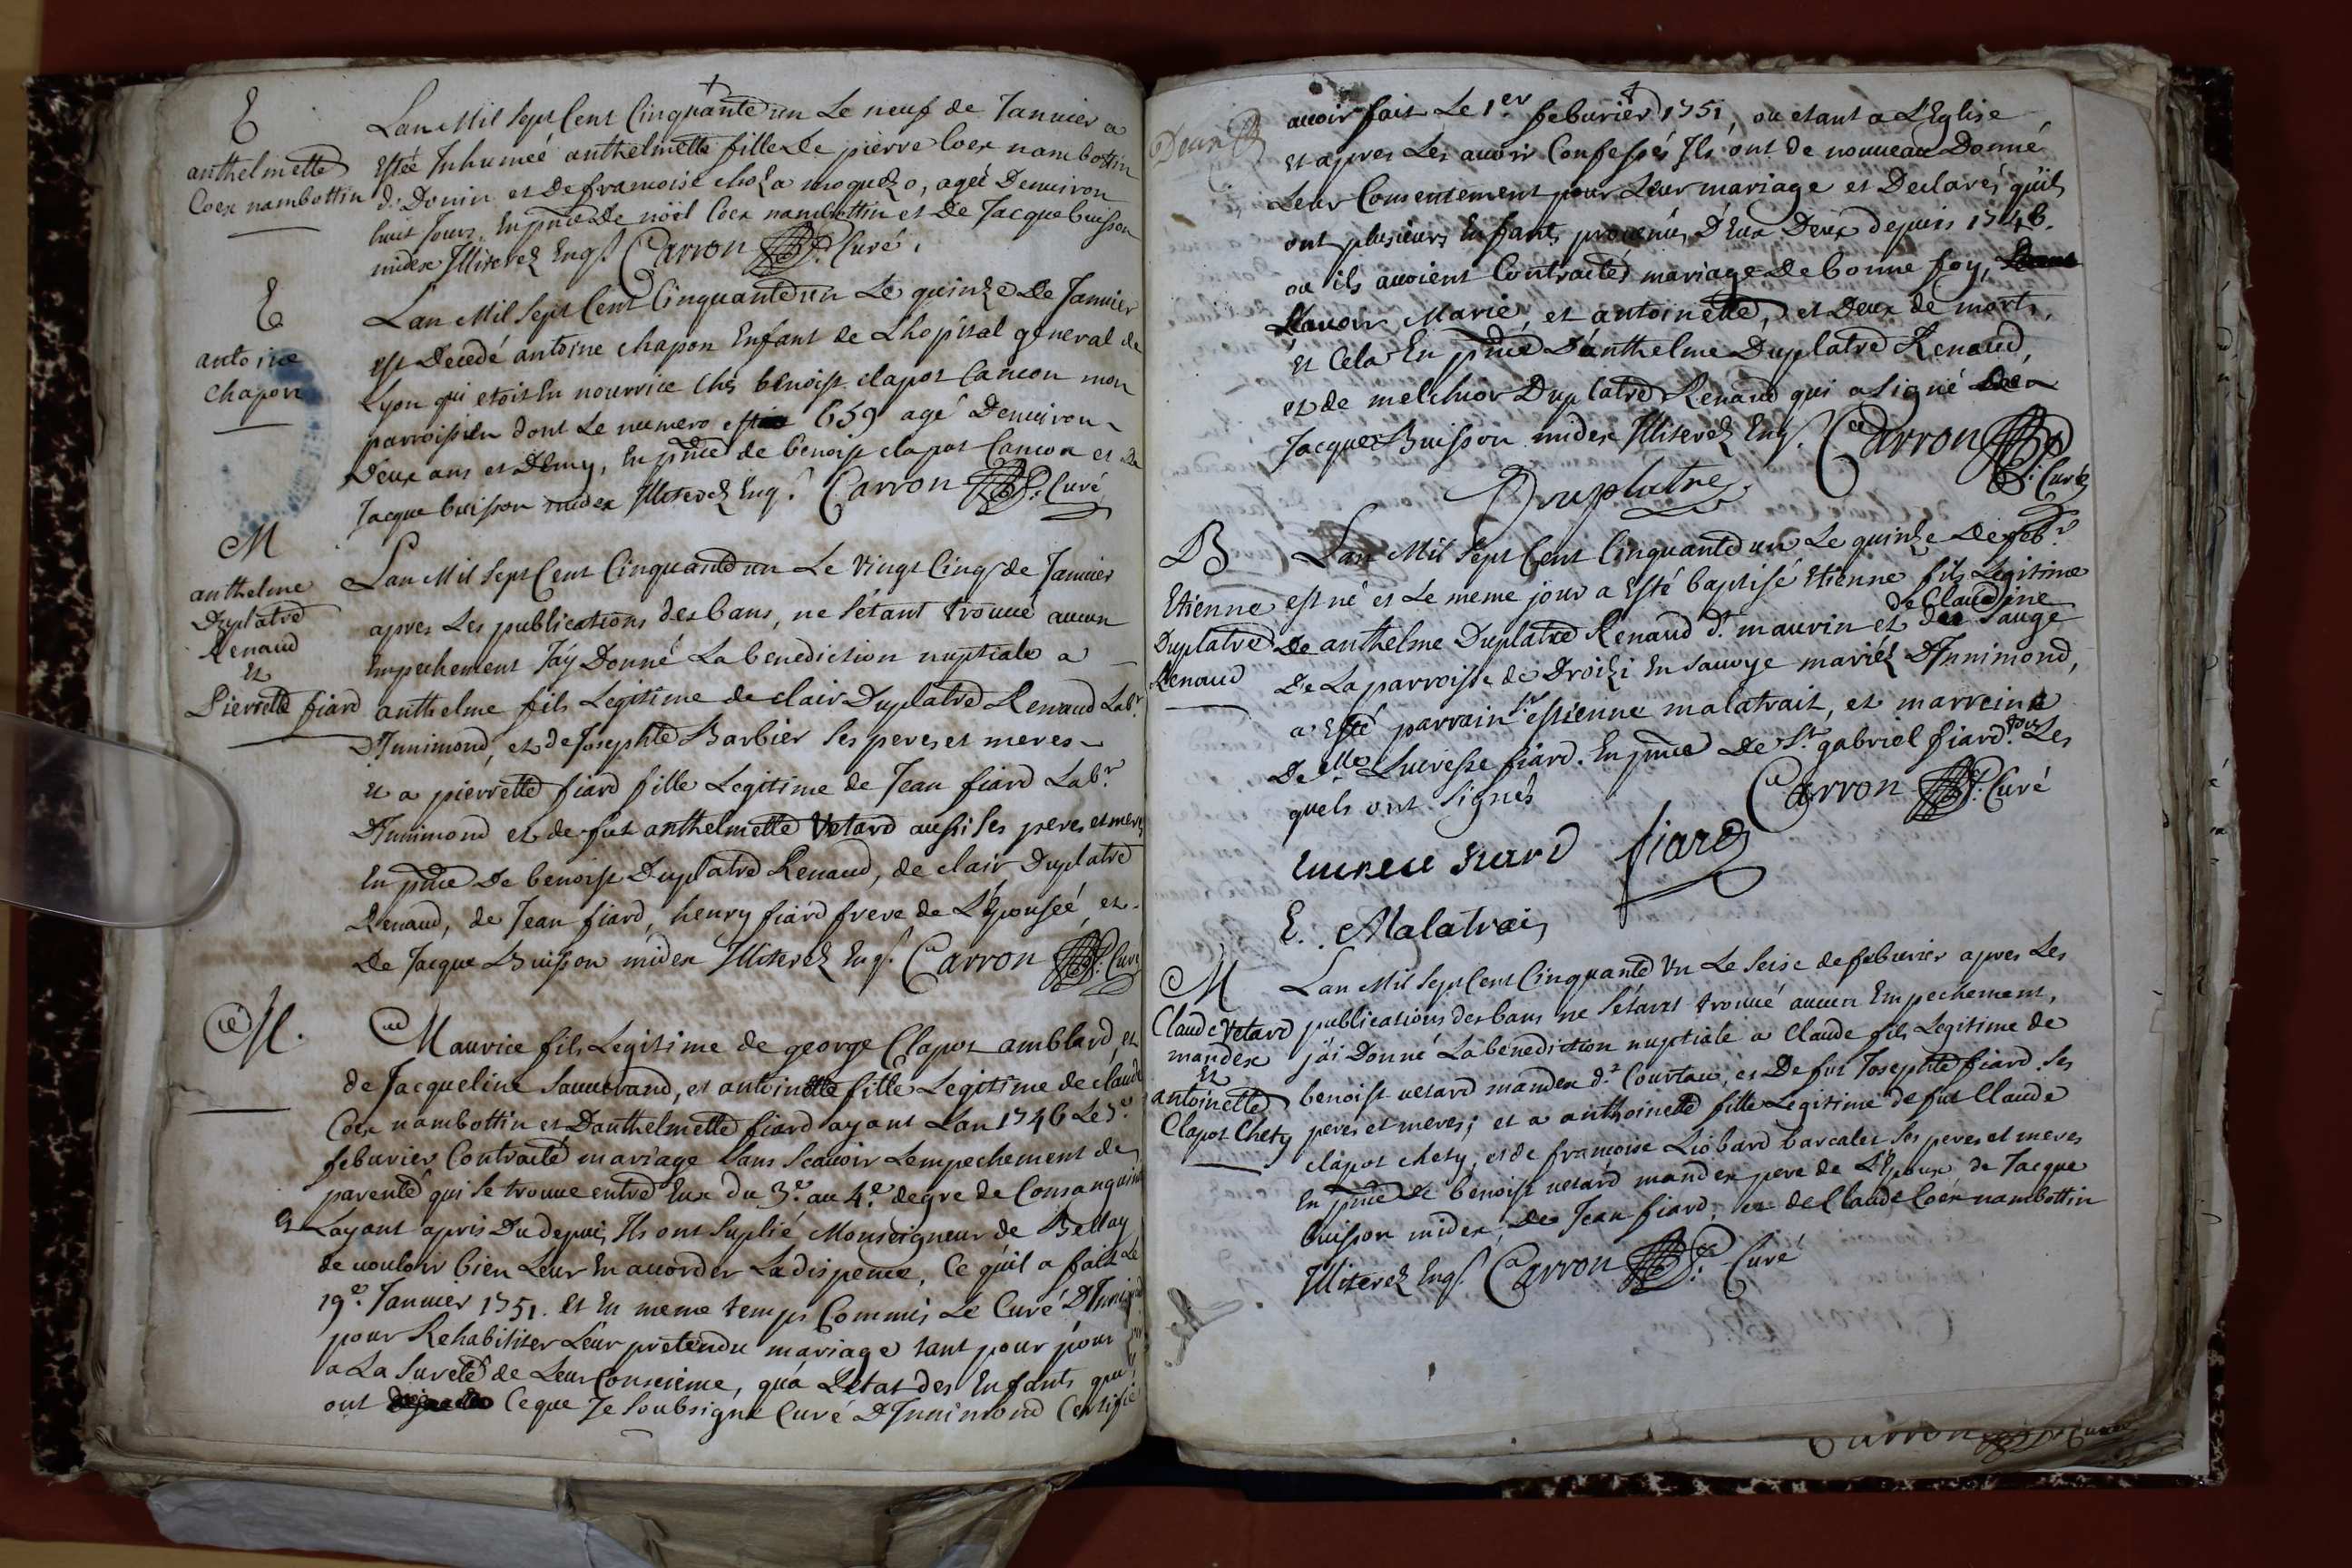 E
anthelmette
Coex nambottin
Lan Mil Sept Cent Cinquante un Le neuf de Janvier a
Estée Inhumée anthelmette fille de pierre Coex nambottin
d. Donin et de francoise moquez, ageé Denviron
huit Jours, En pnce De noël Coex nambottin et De Jacque buisson
midex Illiterez Enqs Carron P. Curé.
E
antoine
Chapon
Lan Mil Sept Cent Cinquante un Le quinze De Janvier
est Decedé antoine chapon Enfant de Lhopital general de
Lyon qui etoit En nourrice chés benoist clapot Cancon mon
parroissien dont Le numero est 659 agé Denviron
Deux ans et Demy, En pnce de benoist clapot Cancon et De
Jacque buisson midex Illiterez Enq. Carron P. Curé
M
anthelme
Duplatre
Renaud
Et
Pierrette fiard
Lan Mil Sept Cent Cinquante un Le Vingt Cinq de Janvier
apres Les publications des bans, ne s'étant trouvé aucun
Empechement J'ay Donné La benediction nuptiale a
anthelme fils Legitime de clair Duplatre Renaud Labr.
D'Innimond, et de Josephte Barbier ses peres et meres
et a pierrette fiard fille Legitime de Jean fiard Labr
D'Innimond et de fut anthelmette Vetard aussi ses peres et meres
En pnce De benoist Duplatre Renaud, de clair Duplatre
Renaud, de Jean fiard, henry fiard frere de L'Epouseé, et
De Jacque Buisson midex Illiterez Enqs. Carron P. Curé
M.
Maurice fils Legitime de george Clapot amblard, et
de Jacqueline Sauverand, et antoinette fille Legitime de claude
Coex nambottin et Danthelmette fiard ayant Lan 1746 Le
feburier Contracté mariage Sans Scavoir Lempechement de
parenté qui se trouve entre Eux du 3.e au 4.e degre de Consanguinité
Et Layant apris Du depuis, Ils ont Suplié Monseigneur de Bellay
de vouloir bien Leur En accorder La dispence, Ce qu'il a fait Le
19.e Janvier 1751. et En meme temps Commis Le Curé D'Innimond
pour Rehabiliter Leur pretendu mariage tant pour pour
a La Sureté de Leur Conscience, qu'a L'etat des Enfants qu'ils
ont Ce que Je Soubsigné Curé D'Innimond Certifie
avoir fait Le 1er feburier 1751, ou etant a L'Eglise
et apres Les avoir Confessés Ils ont de nouveau Donné
Leur Consentement pour Leur mariage et Declarés qu'ils
ont plusieurs Enfants provenus D'Eux Deux depuis 1746.
ou ils avoient Contractés mariage De bonne foy,
Scavoir Marie, et antoinette, et Deux de morts,
et Cela En pnce D'anthelme Duplatre Renaud,
et de melchior Duplatre Renaud qui a signé
Jacques Buisson midex Illiterez Enqs. Carron
P. Curé
Duplatre
B
Etienne
Duplatre
Renaud
Lan Mil Sept Cent Cinquante un Le quinze De febr
est né et Le meme jour a Esté baptisé Etienne fils Legitime
De anthelme Duplatre Renaud d. maurin et de Claudine Sauge
De La parroisse de Droizi En Savoye mariéz D'Innimond,
a Esté parrain Sr estienne malatrait, et marreine
Delle Lucresse fiard. En pnce De Sr gabriel fiard tous Les
quels ont signés Carron P. Curé
fiard
E. Malatrais
M
Claude Vetard
mandex
Et
antoinette
Clapot Chety
Lan Mil Sept Cent Cinquante Un Le Seise de feburier apres Les
publications des bans ne s'étant trouvé aucun Empechement,
j'ai Donné La benediction nuptiale a Claude fils Legitime de
benoist vetard mandex d.t Courtau, et De fut Josephte fiard Ses
peres et meres; et a anthoinette fille Legitime de fut Claude
clapot chety, et de francoise Liobard barcalet Ses peres et meres
En pnce de benoist vetard mandex pere de L'Epoux de Jacque
buisson midex, De Jean fiard, et de Claude Coex nambottin
Illiterez Enqs. Carron P. Curé
Carron Curé